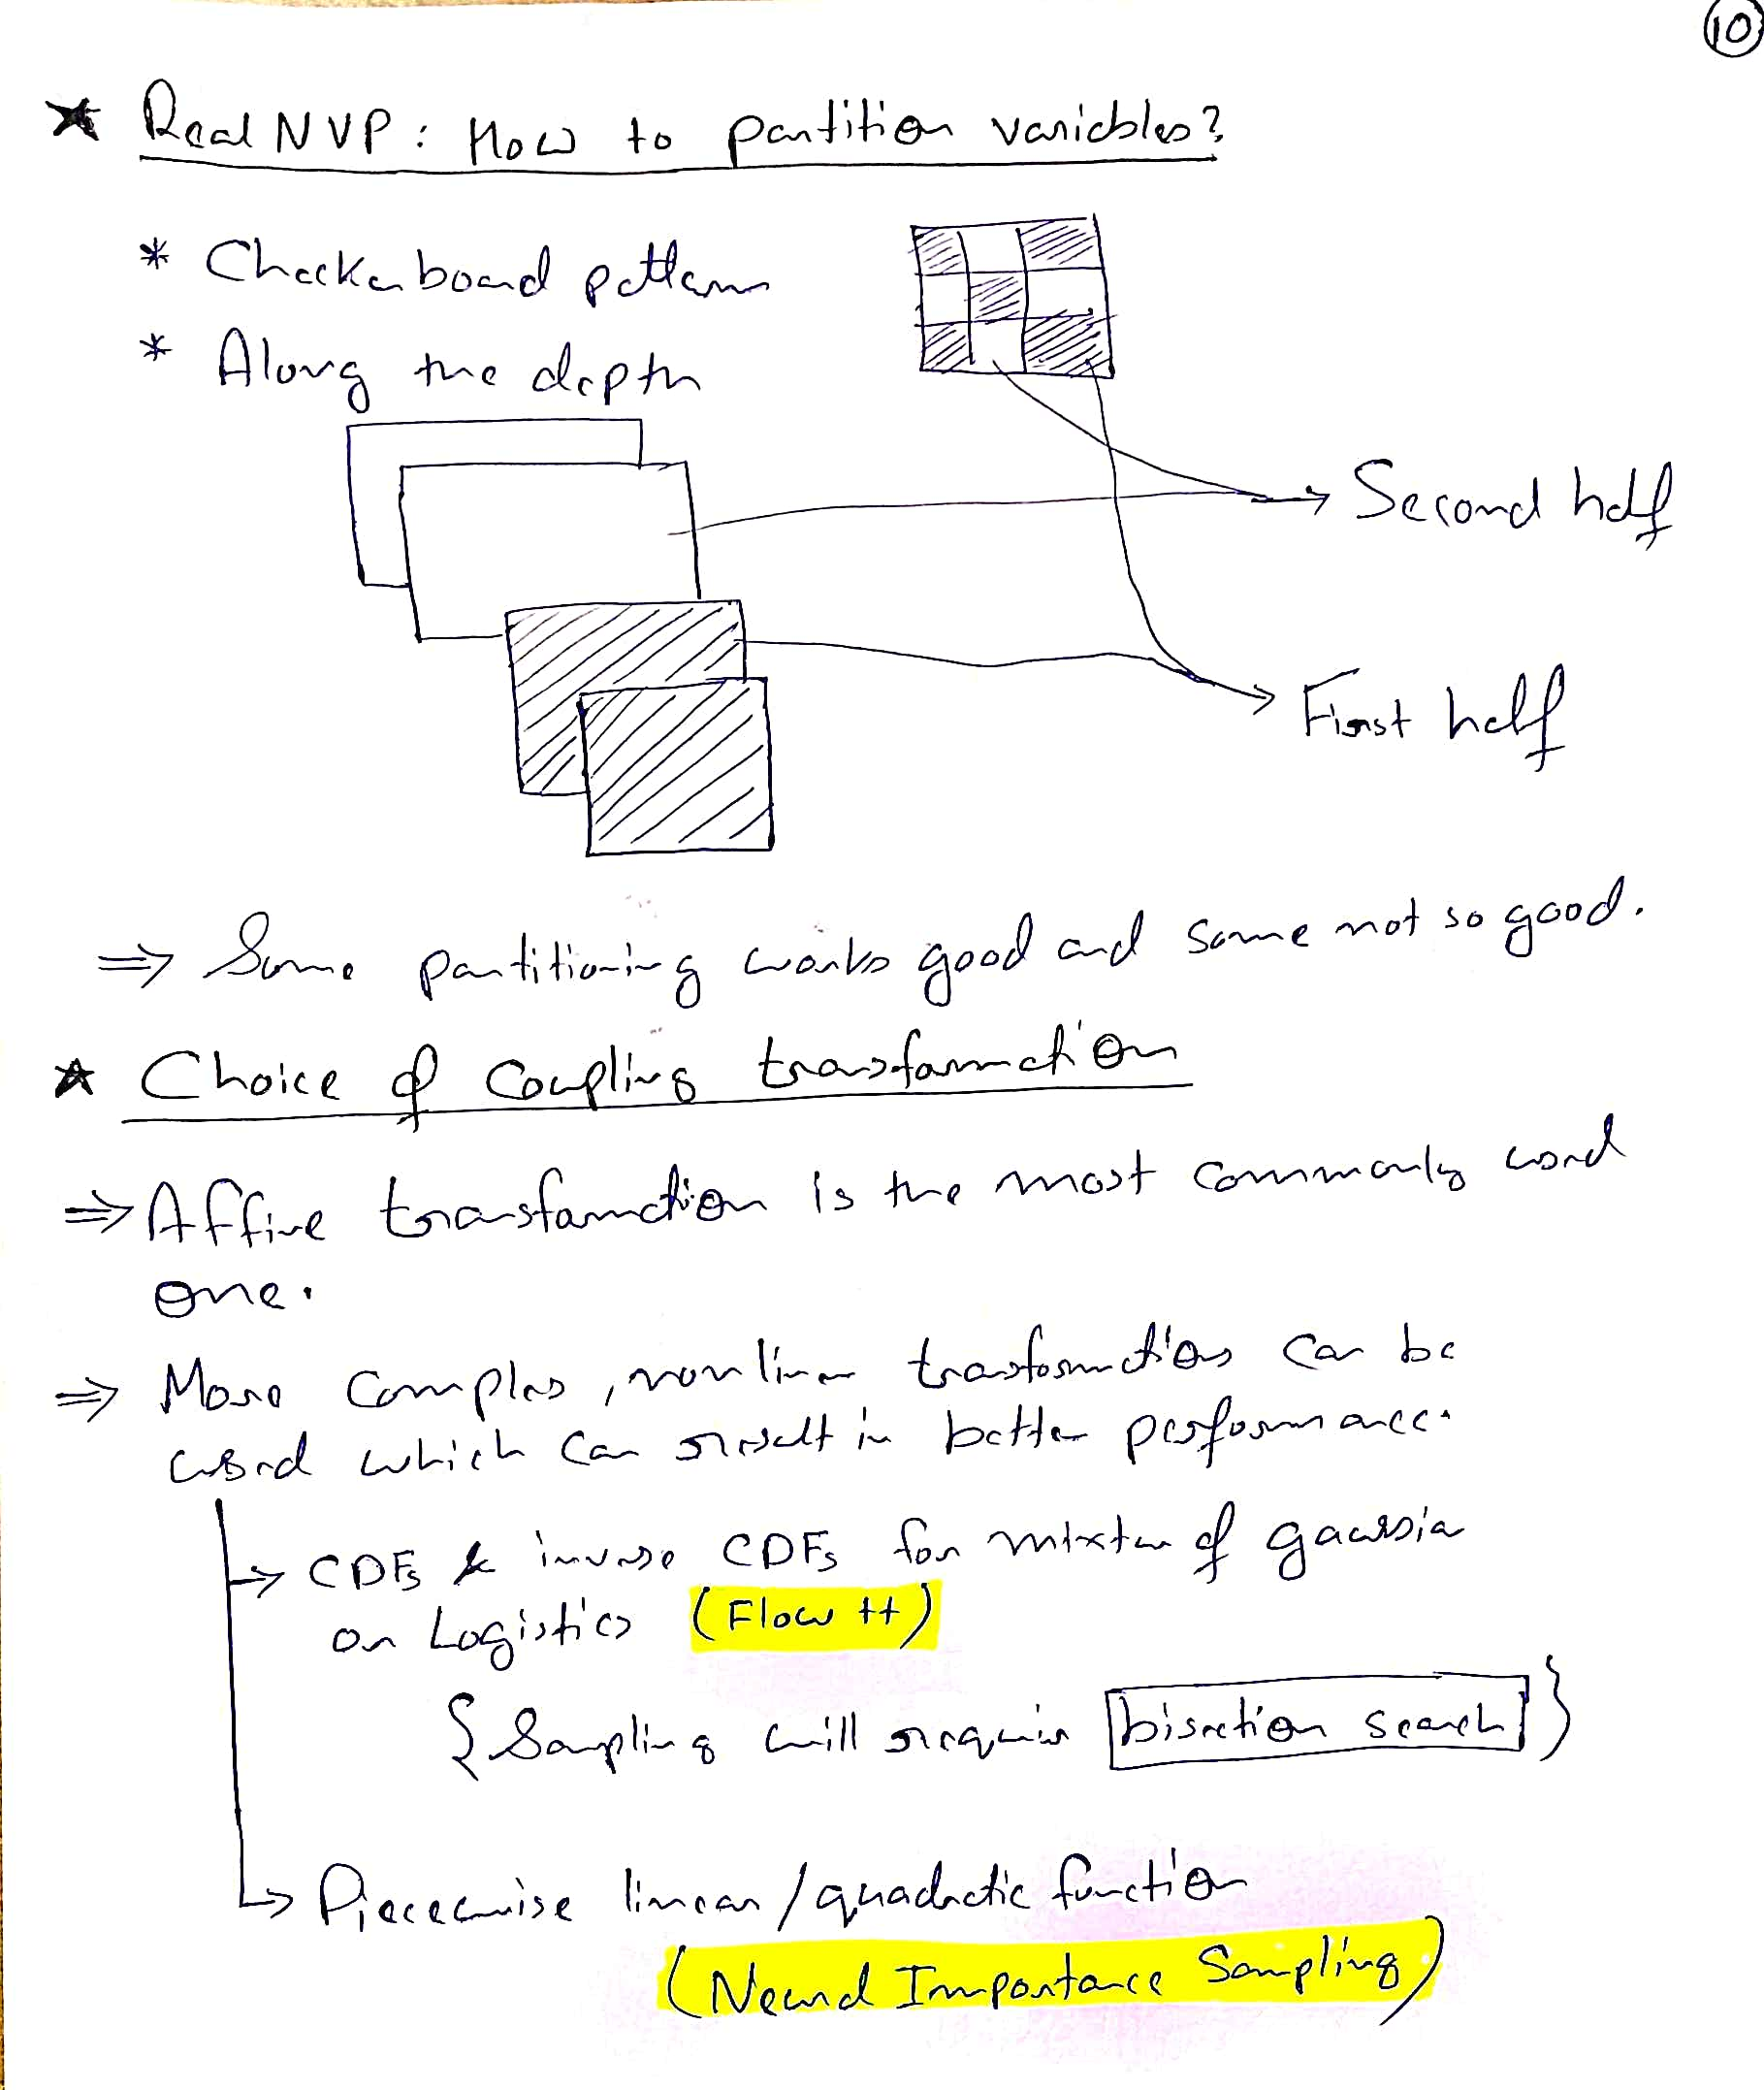 10
* Real NVP: How to partition variables?
* Checkerboard pattern
* Along the depth
Second half
First half
⇒ Some partitioning works good and some not so good.
* Choice of Coupling transformation
⇒ Affine transformation is the most commonly used
one.
⇒ More complex, nonlinear transformations can be
used which can result in better performance.
→ CDFs & inverse CDFs for mixture of gaussian
or Logistics (Flow ++)
{Sampling will require bisection search}
→ Piecewise linear/quadratic function
(Neural Importance Sampling)